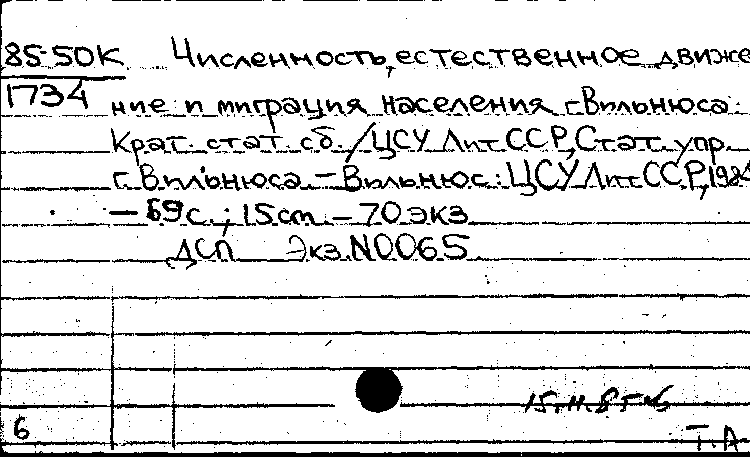 85-50К Численность, естественное движе
1734 ние и миграция населения г. Вильнюса:
Крат. стат. сб. / ЦСУ ЛитССР, Стат. упр.
г. Вильнюса. - Вильнюс: ЦСУ ЛитССР,
- 69 с.; 15 см. - 70 экз.
ДСП Экз. N0065
15.11.85
6
Т.А